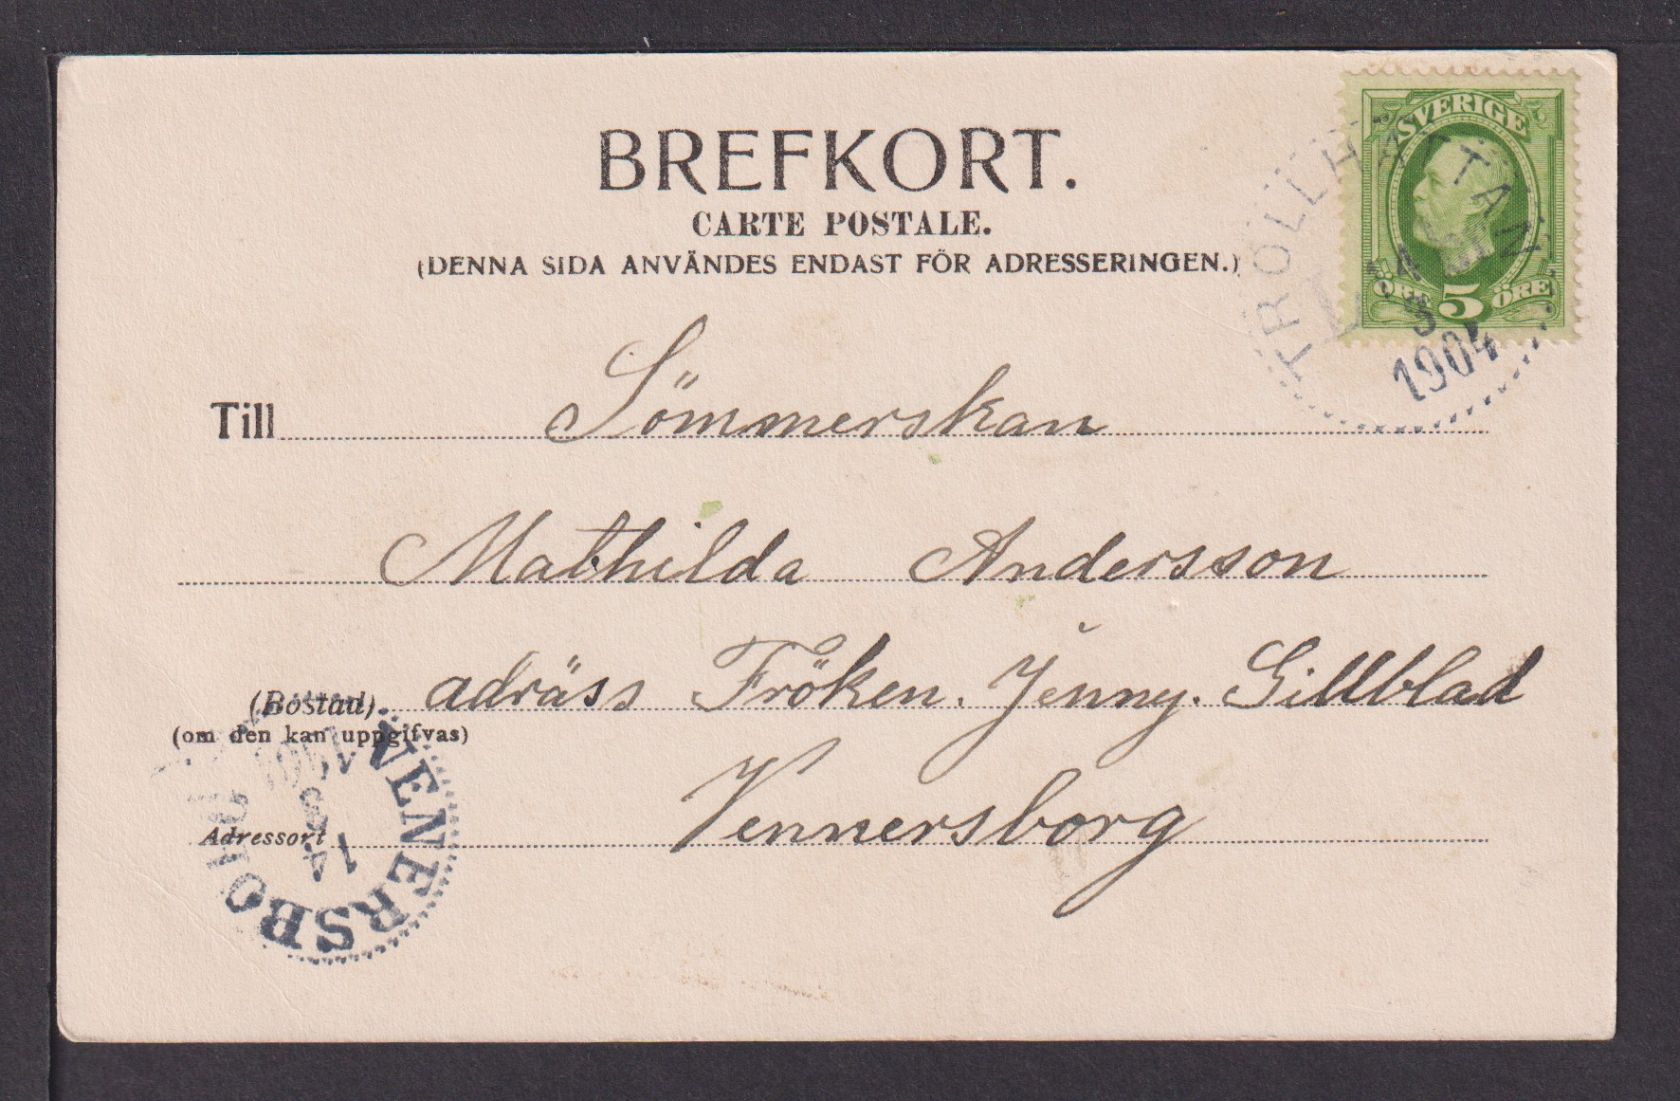 BREFKORT.
CARTE POSTALE.
(DENNA SIDA ANVÄNDES ENDAST FÖR ADRESSERINGEN.)
SVERIGE
ÖRE 5 ÖRE
TROLLHÄTTAN
1904
Till Sömmerskan
Mathilda Andersson
(Bostad) adräss Fröken. Jenny. Gillblad
(om den kan uppgifvas)
Adressort Vennersborg
VENERSBORG
14
8